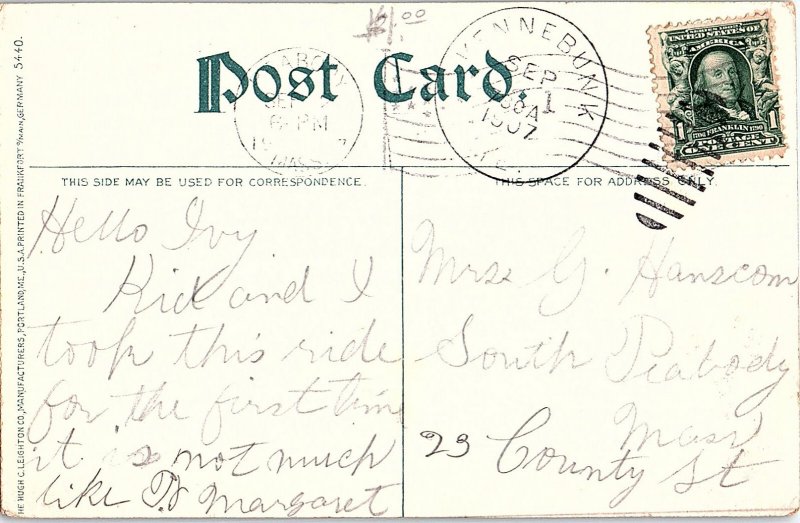 $1.00
Post Card.
PEABODY
SEP
6 PM
MASS.
KENNEBUNK
SEP
11
8 A
1907
ME.
SERIES 1902
UNITED STATES OF AMERICA
1 1
FRANKLIN
POSTAGE
ONE CENT
THIS SIDE MAY BE USED FOR CORRESPONDENCE.
THIS SPACE FOR ADDRESS ONLY.
Hello Ivy
Kid and I
took this ride
for the first time
it is not much
like
Margaret
Mrs G. Hanscom
South Peabody
Mass
23 County St
THE HUGH C. LEIGHTON CO., MANUFACTURERS, PORTLAND, ME., U.S.A. PRINTED IN FRANKFORT o/MAIN, GERMANY 5440.